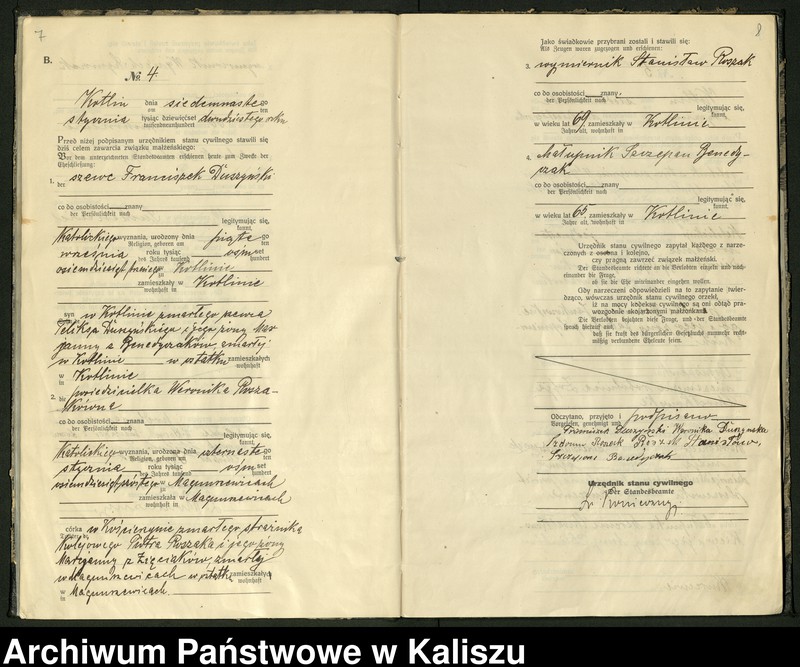 7
B.
№ 4.
Kotlin dnia siedemnastego
am ten
stycznia tysiąc dziewięćset dwudziestego roku
tausendneunhundert
Przed niżej podpisanym urzędnikiem stanu cywilnego stawili się
dziś celem zawarcia związku małżeńskiego:
Vor dem unterzeichneten Standesbeamten erschienen heute zum Zwecke der
Eheschließung:
1. szewc Franciszek Duszyński
der
co do osobistości znany
der Persönlichkeit nach
legitymując się,
kannt,
Katolickiego wyznania, urodzony dnia piątego
Religion, geboren am ten
września roku tysiąc ośmset
des Jahres tausend
osiemdziesiąt w Kotlinie
zu
zamieszkały w Kotlinie
wohnhaft in
syn w Kotlinie zmarłego szewca
Feliksa Duszyńskiego i jego żony Mar-
janny z Benedyczaków, zmarłej
w Kotlinie w ostatku zamieszkałych
wohnhaft
w Kotlinie
in
2. posiedzicielka Weronika Rosza-
die
kówna
co do osobistości znana
der Persönlichkeit nach
legitymując się,
kannt,
Katolickiego wyznania, urodzona dnia czternastego
Religion, geboren am ten
stycznia roku tysiąc ośmset
des Jahres tausend
w Magnuszewicach
zu
zamieszkała w Magnuszewicach
wohnhaft in
córka w Kościerzynie zmarłego strażnika
kolejowego Piotra Roszaka i jego żony
Marcyanny z Zięciaków, zmarłej
w Magnuszewicach w ostatku zamieszkałych
wohnhaft
w Magnuszewicach.
in
8
Jako świadkowie przybrani zostali i stawili się:
Als Zeugen waren zugezogen und erschienen:
3. wymiernik Stanisław Roszak
co do osobistości znany
der Persönlichkeit nach
legitymując się,
kannt,
w wieku lat 69, zamieszkały w Kotlinie
Jahre alt, wohnhaft in
4. chałupnik Szczepan Benedy-
czak
co do osobistości znany
der Persönlichkeit nach
legitymując się,
kannt,
w wieku lat 65, zamieszkały w Kotlinie
Jahre alt, wohnhaft in
Urzędnik stanu cywilnego zapytał każdego z narze-
czonych z osobna i kolejno,
czy pragną zawrzeć związek małżeński.
Der Standesbeamte richtete an die Verlobten einzeln und nach-
einander die Frage,
ob sie die Ehe miteinander eingehen wollen.
Gdy narzeczeni odpowiedzieli na to zapytanie twier-
dząco, wówczas urzędnik stanu cywilnego orzekł,
iż na mocy kodeksu cywilnego są oni odtąd pra-
wozgodnie skojarzonymi małżonkami.
Die Verlobten bejahten diese Frage, und der Standesbeamte
sprach hierauf aus,
daß sie kraft des bürgerlichen Gesetzbuchs nunmehr recht-
mäßig verbundene Eheleute seien.
Odczytano, przyjęto i podpisano
Vorgelesen, genehmigt und
Franciszek Duszyński Weronika Duszynska
Roszak Stanisław,
Szczepan Benedyczak
Urzędnik stanu cywilnego
Der Standesbeamte
Archiwum Państwowe w Kaliszu